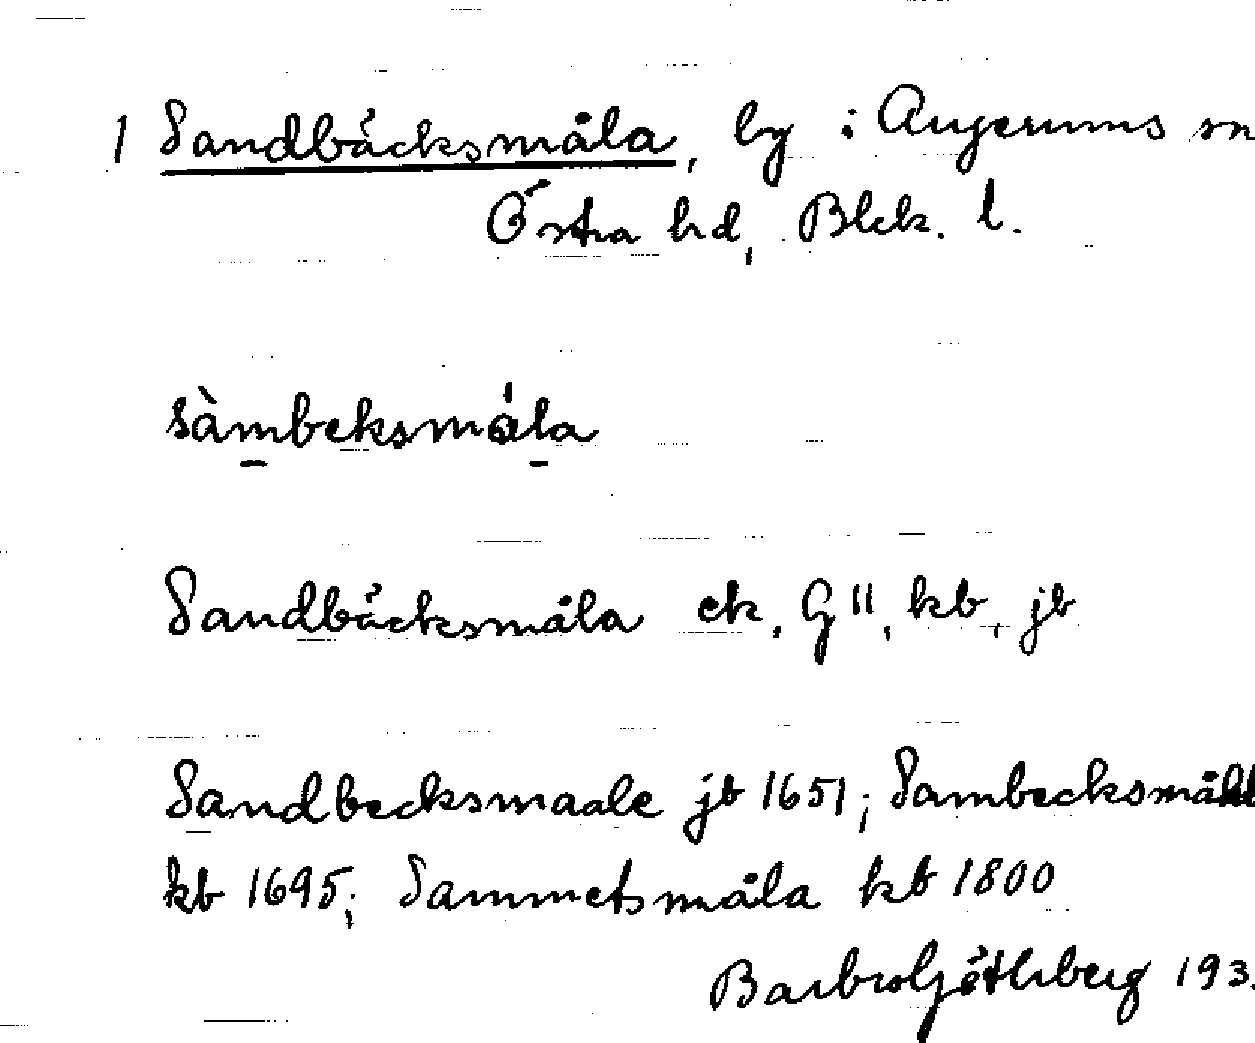 1 Sandbäcksmåla, by i Augerums sn
Östra hd, Blek. l.
sàmbeksmåla
Sandbäcksmåla ek, GII, kb, jb
Sandbecksmaale jb 1651; Sambecksmåhl
kb 1695; Sammetsmåla kb 1800
Barbro Göthberg 193